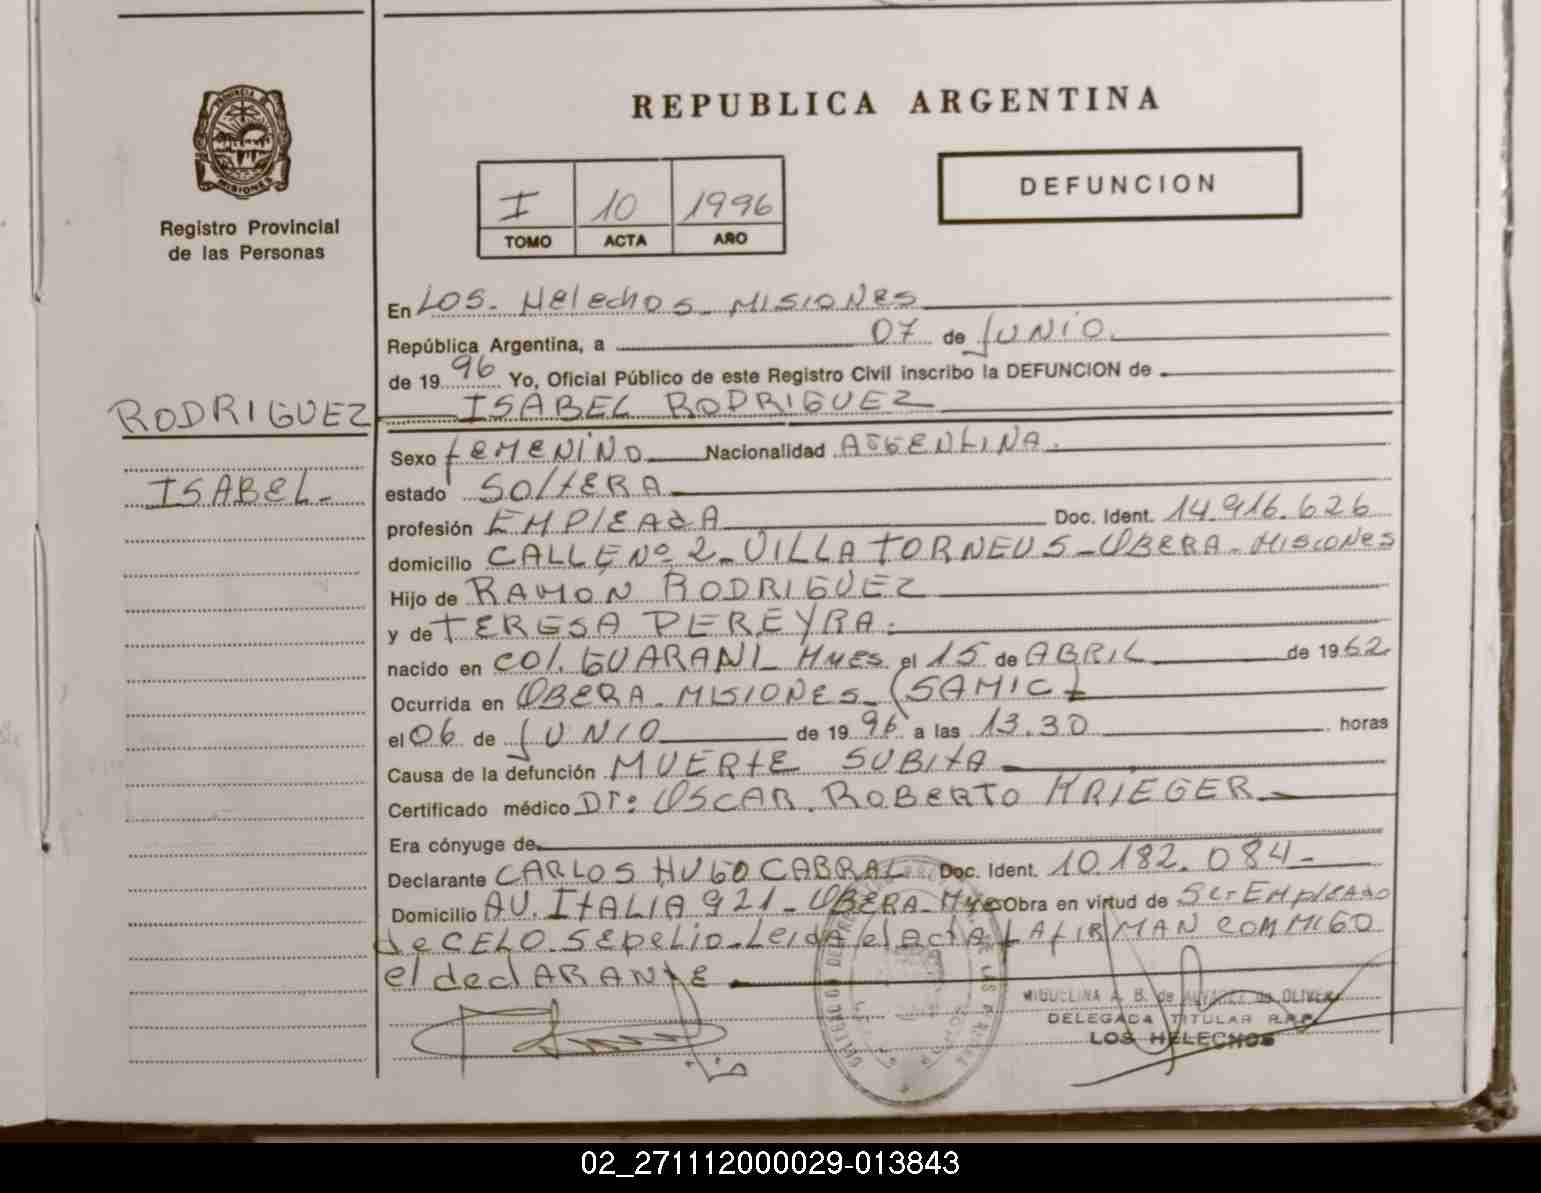 PROVINCIA DE
MISIONES
Registro Provincial
de las Personas
REPUBLICA ARGENTINA
DEFUNCION
I 10 1996
TOMO ACTA AÑO
En LOS. Helechos. MISIONES
República Argentina, a 07 de JUNIO.
de 1996 Yo, Oficial Público de este Registro Civil inscribo la DEFUNCION de
RODRIGUEZ ISABEL RODRIGUEZ
Sexo FEMENINO Nacionalidad ARGENTINA.
ISABEL- estado SOLTERA
profesión EMPLEAdA Doc. Ident. 14.916.626
domicilio CALLE Nº 2-VILLA TORNEUS-OBERA-MISIONES
Hijo de RAMON RODRIGUEZ
y de TERESA PEREYRA.
nacido en COl. GUARANI- Mnes. el 15 de ABRIL de 1962
Ocurrida en OBERA-MISIONES-(SAMIC)
el 06 de JUNIO de 1996 a las 13.30 horas
Causa de la defunción MUERtE SUBItA
Certificado médico Dr: OSCAR. ROBERTO KRIEGER
Era cónyuge de
Declarante CARLOS HUGO CABRAL Doc. Ident. 10.182.084-
Domicilio AV. ItALIA 921-OBERA-Mnes Obra en virtud de Ser EMpleAdo
de CELO. Sepelio-Leida el Acta LA fIRMAN COMMIGO
el declARANtE
MIGUELINA A. B. de ALVAREZ de OLIVERA
DELEGADA TITULAR R.P.P.
LOS HELECHOS
02_271112000029-013843